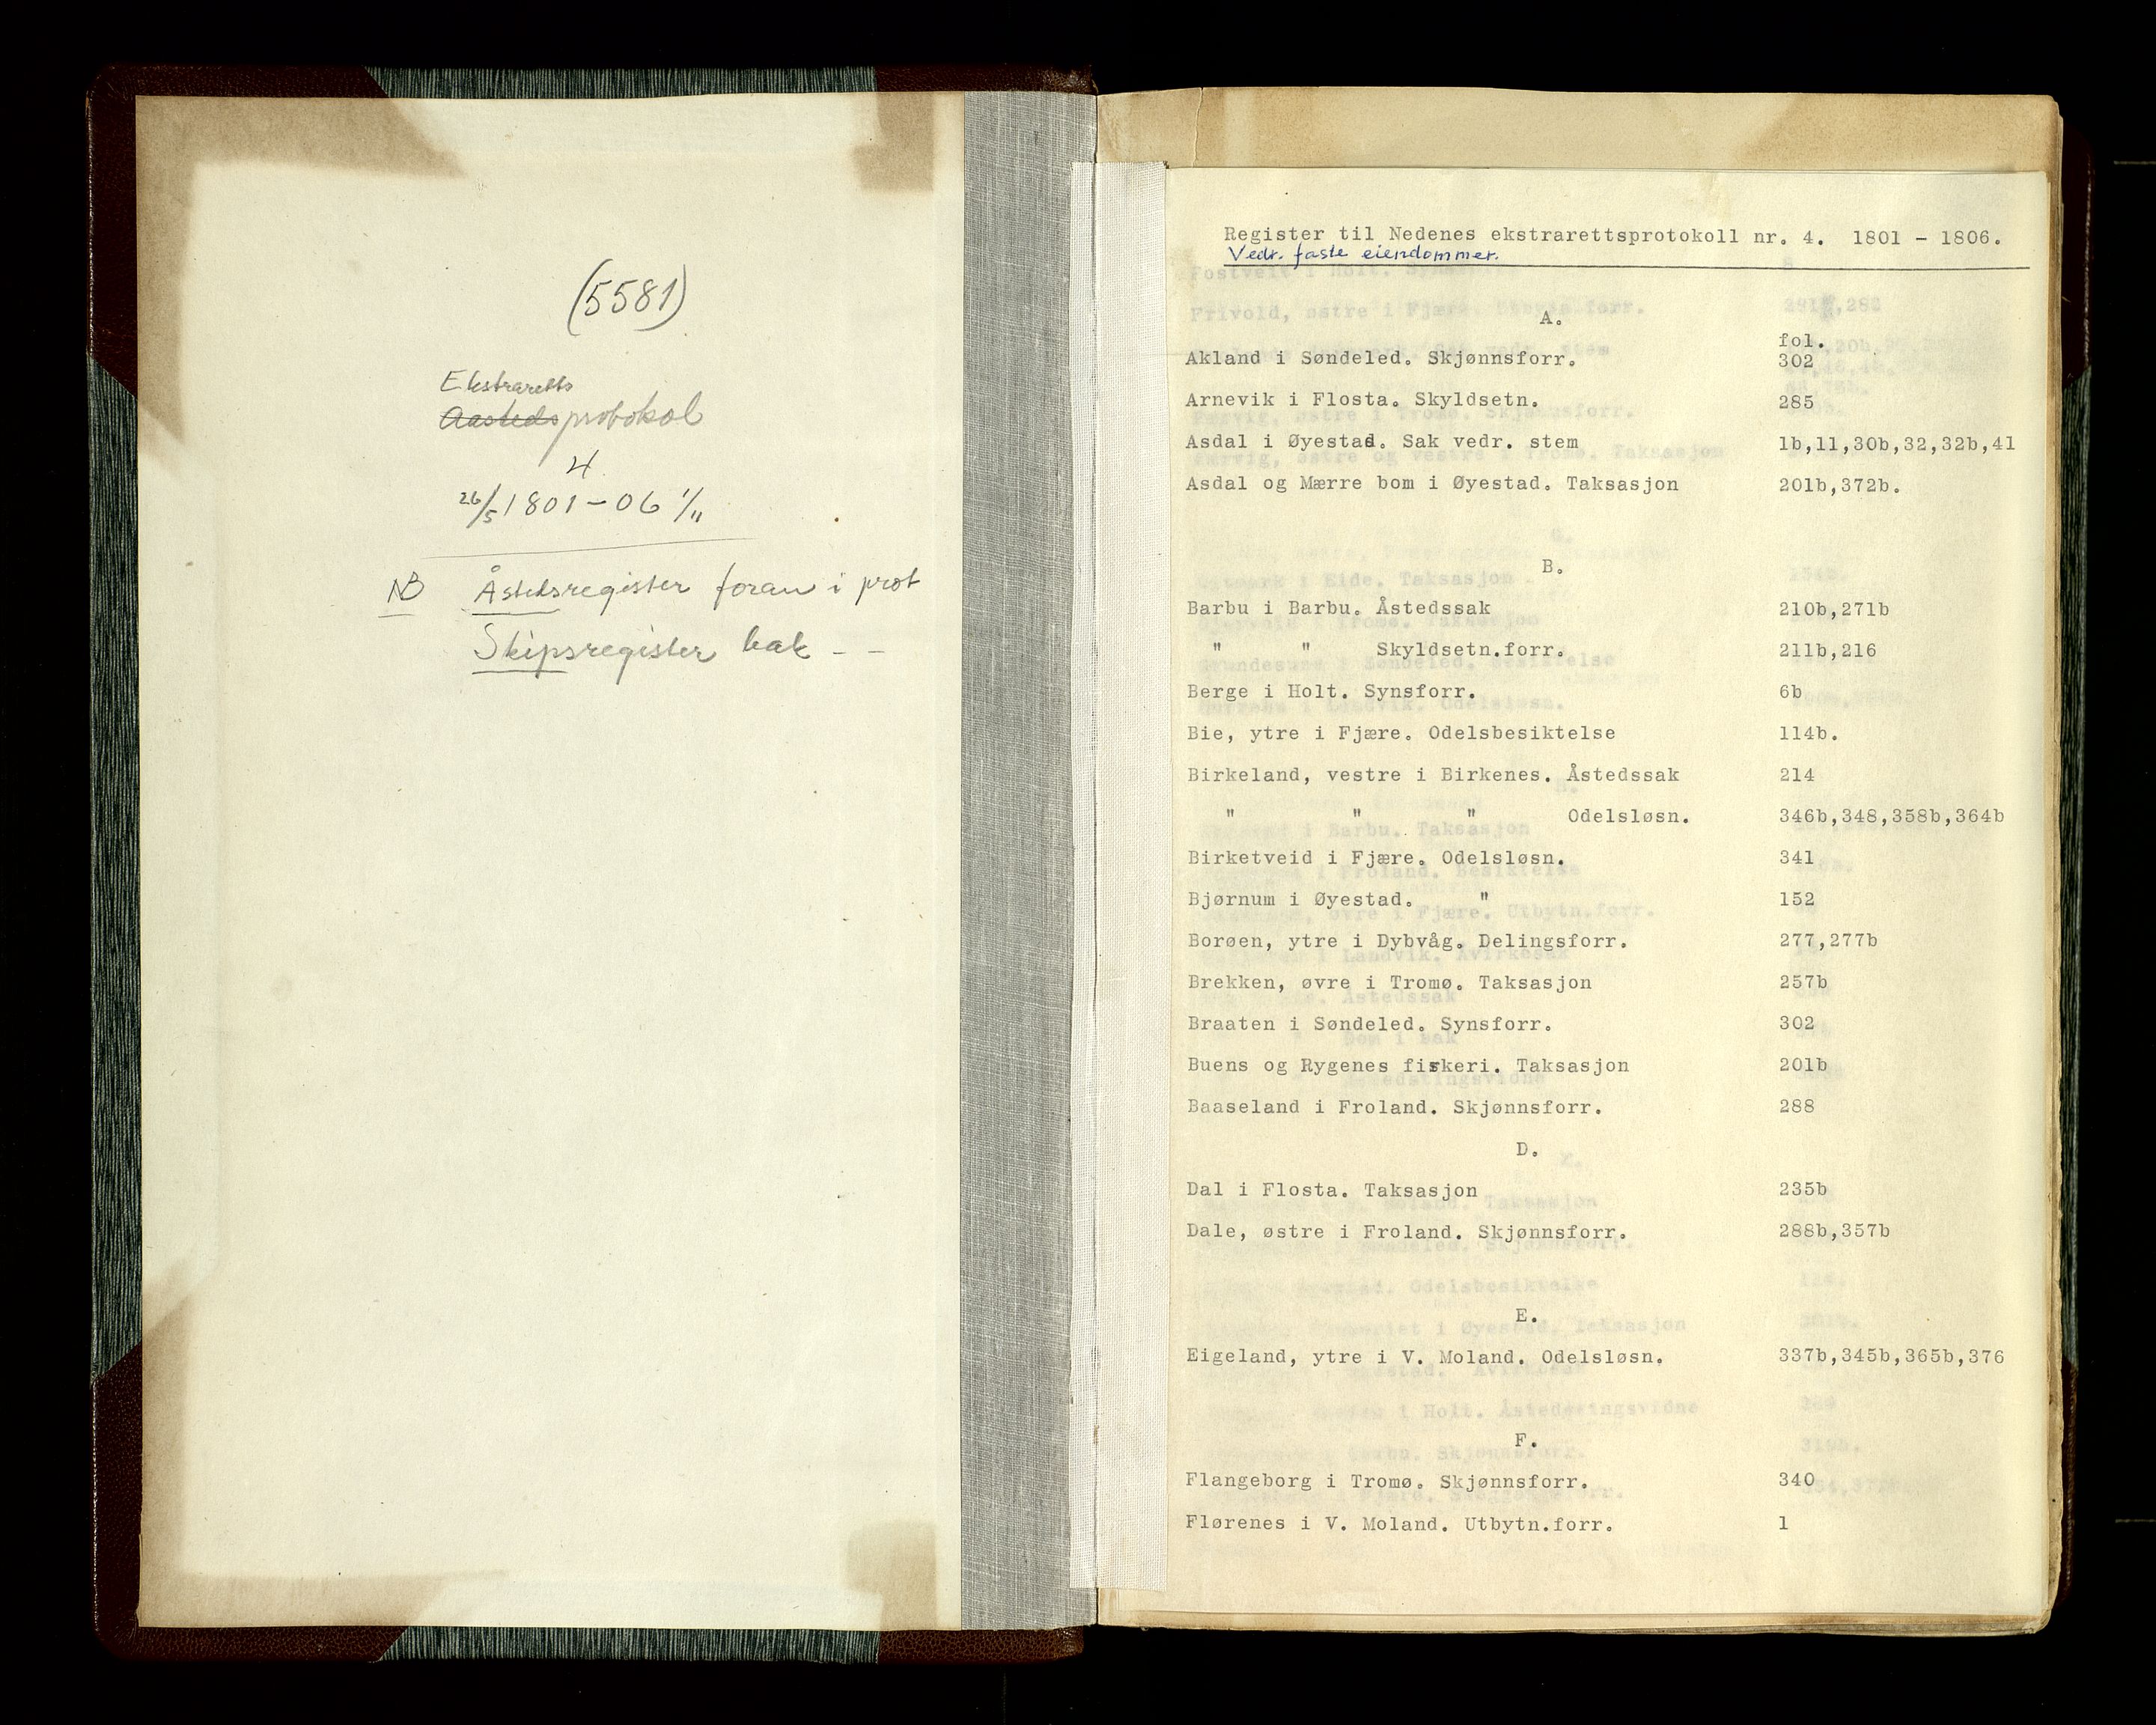 (5581)
Ekstraretts
Aastedsprotokol
4
26/5 1801 - 06 1/11
NB Åstedsregister foran i prot
Skipsregister bak - -
Register til Nedenes ekstrarettsprotokoll nr. 4. 1801 - 1806.
Vedr. faste eiendommer.
A.
fol.
Akland i Søndeled. Skjønnsforr. 302
Arnevik i Flosta. Skyldsetn. 285
Asdal i Øyestad. Sak vedr. stem 1b,11,30b,32,32b,41
Asdal og Mærre bom i Øyestad. Taksasjon 201b,372b.
B.
Barbu i Barbu. Åstedssak 210b,271b
" " Skyldsetn.forr. 211b,216
Berge i Holt. Synsforr. 6b
Bie, ytre i Fjære. Odelsbesiktelse 114b.
Birkeland, vestre i Birkenes. Åstedssak 214
" " " Odelsløsn. 346b,348,358b,364b
Birketveid i Fjære. Odelsløsn. 341
Bjørnum i Øyestad. " 152
Borøen, ytre i Dybvåg. Delingsforr. 277,277b
Brekken, øvre i Tromø. Taksasjon 257b
Braaten i Søndeled. Synsforr. 302
Buens og Rygenes fiskeri. Taksasjon 201b
Baaseland i Froland. Skjønnsforr. 288
D.
Dal i Flosta. Taksasjon 235b
Dale, østre i Froland. Skjønnsforr. 288b,357b
E.
Eigeland, ytre i V. Moland. Odelsløsn. 337b,345b,365b,376
F.
Flangeborg i Tromø. Skjønnsforr. 340
Flørenes i V. Moland. Utbytn.forr. 1